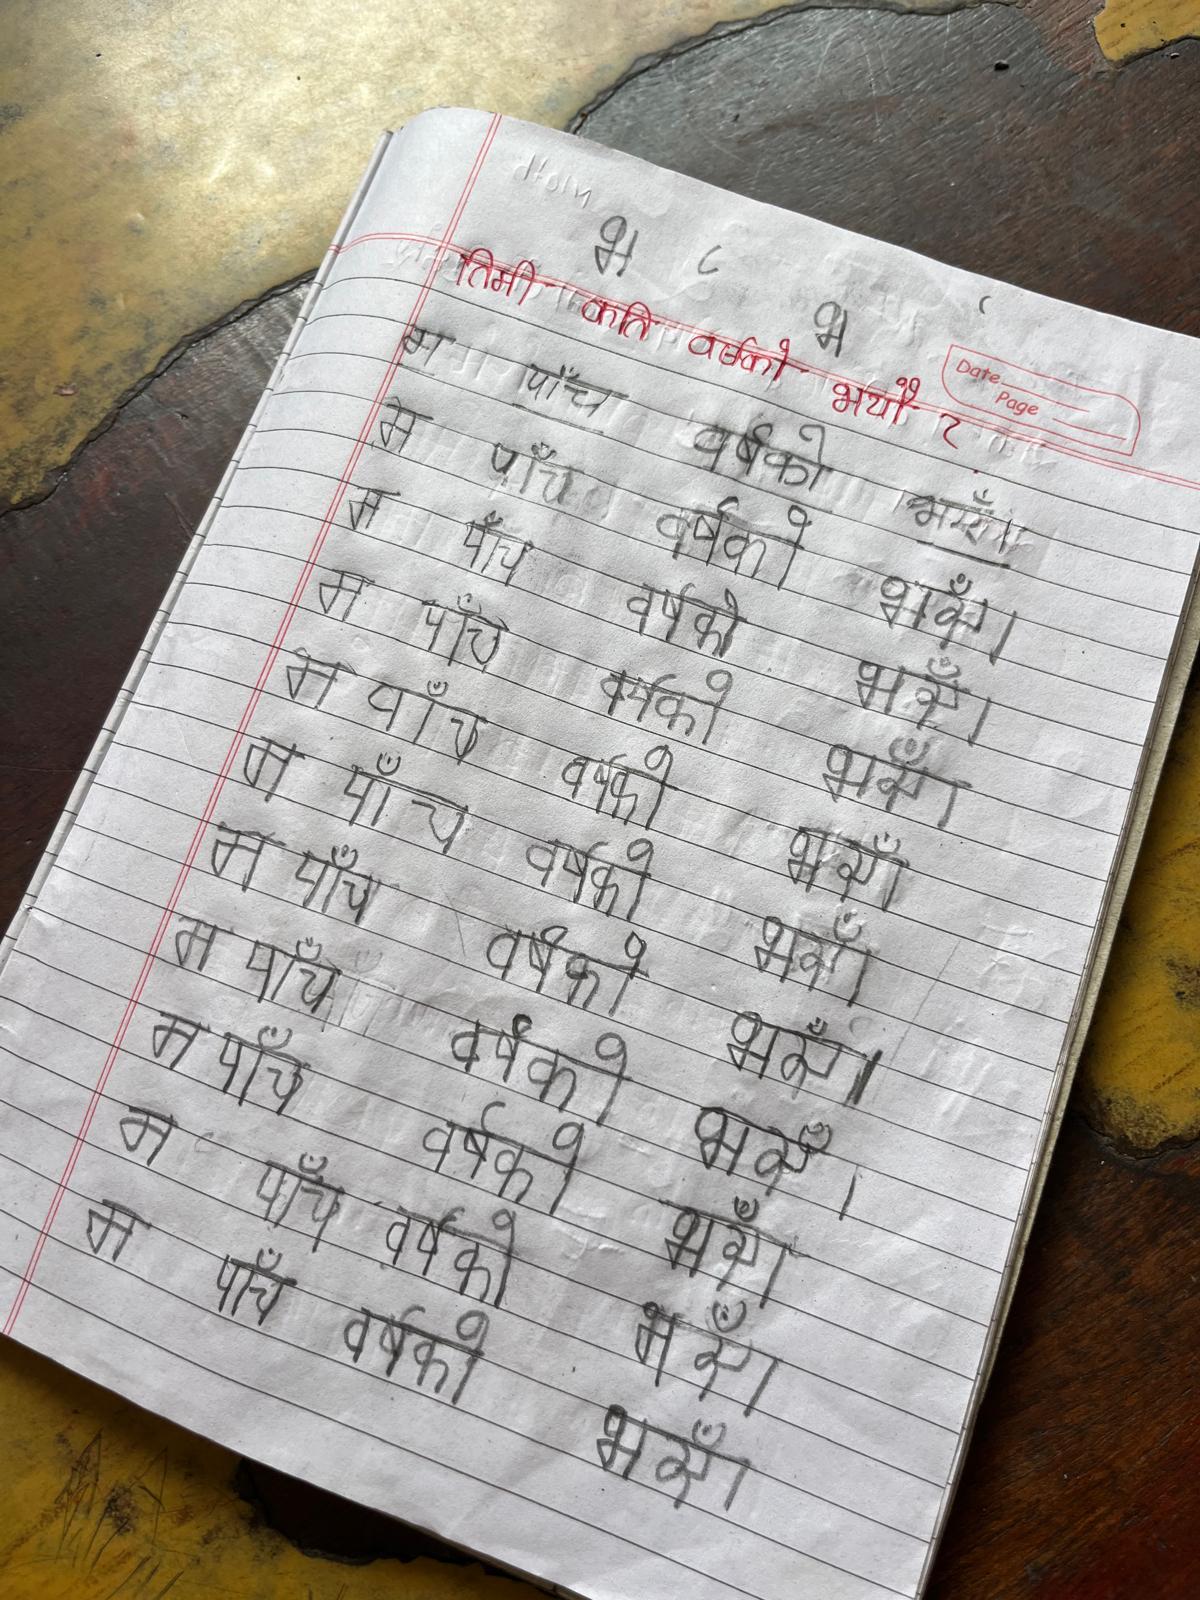 भ
भ
तिमी कति वर्षको भयौ ?
Date
Page
म पाँच वर्षको भएँ।
म पाँच वर्षको भएँ।
म पाँच वर्षको भएँ।
म पाँच वर्षको भएँ।
म पाँच वर्षको भएँ
म पाँच वर्षको भएँ।
म पाँच वर्षको भएँ।
म पाँच वर्षको भएँ।
म पाँच वर्षको भएँ।
म पाँच वर्षको भएँ।
म पाँच वर्षको भएँ।